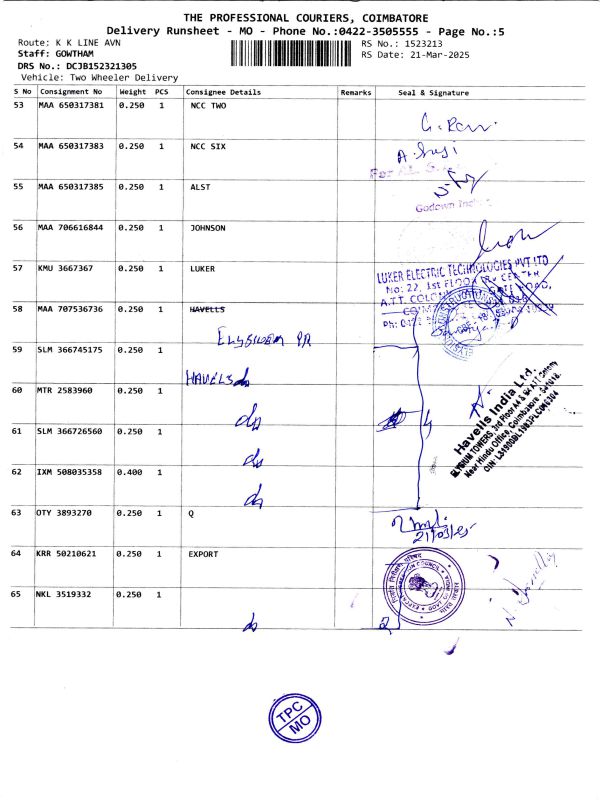 THE PROFESSIONAL COURIERS, COIMBATORE
Delivery Runsheet - MO - Phone No.:0422-3505555 - Page No.:5
Route: K K LINE AVN
RS No.: 1523213
Staff: GOWTHAM
RS Date: 21-Mar-2025
DRS No.: DCJB152321305
Vehicle: Two Wheeler Delivery
S No Consignment No Weight PCS Consignee Details Remarks Seal & Signature
53 MAA 650317381 0.250 1 NCC TWO
54 MAA 650317383 0.250 1 NCC SIX
55 MAA 650317385 0.250 1 ALST
Godown
56 MAA 706616844 0.250 1 JOHNSON
57 KMU 3667367 0.250 1 LUKER
LUKER ELECTRIC TECHNOLOGIES PVT LTD
No: 22, 1st FLOOR
A.T.T. COLONY
58 MAA 707536736 0.250 1 HAVELLS
59 SLM 366745175 0.250 1
HAVELS do
60 MTR 2583960 0.250 1
do
61 SLM 366726560 0.250 1
do
62 IXM 508035358 0.400 1
do
Havells India Ltd.
ELYSIUM TOWERS, 3rd Floor
Near Hindu Office, Coimbatore - 641018.
63 OTY 3893270 0.250 1 Q
21/03/25
64 KRR 50210621 0.250 1 EXPORT
65 NKL 3519332 0.250 1
do
TPC
MO